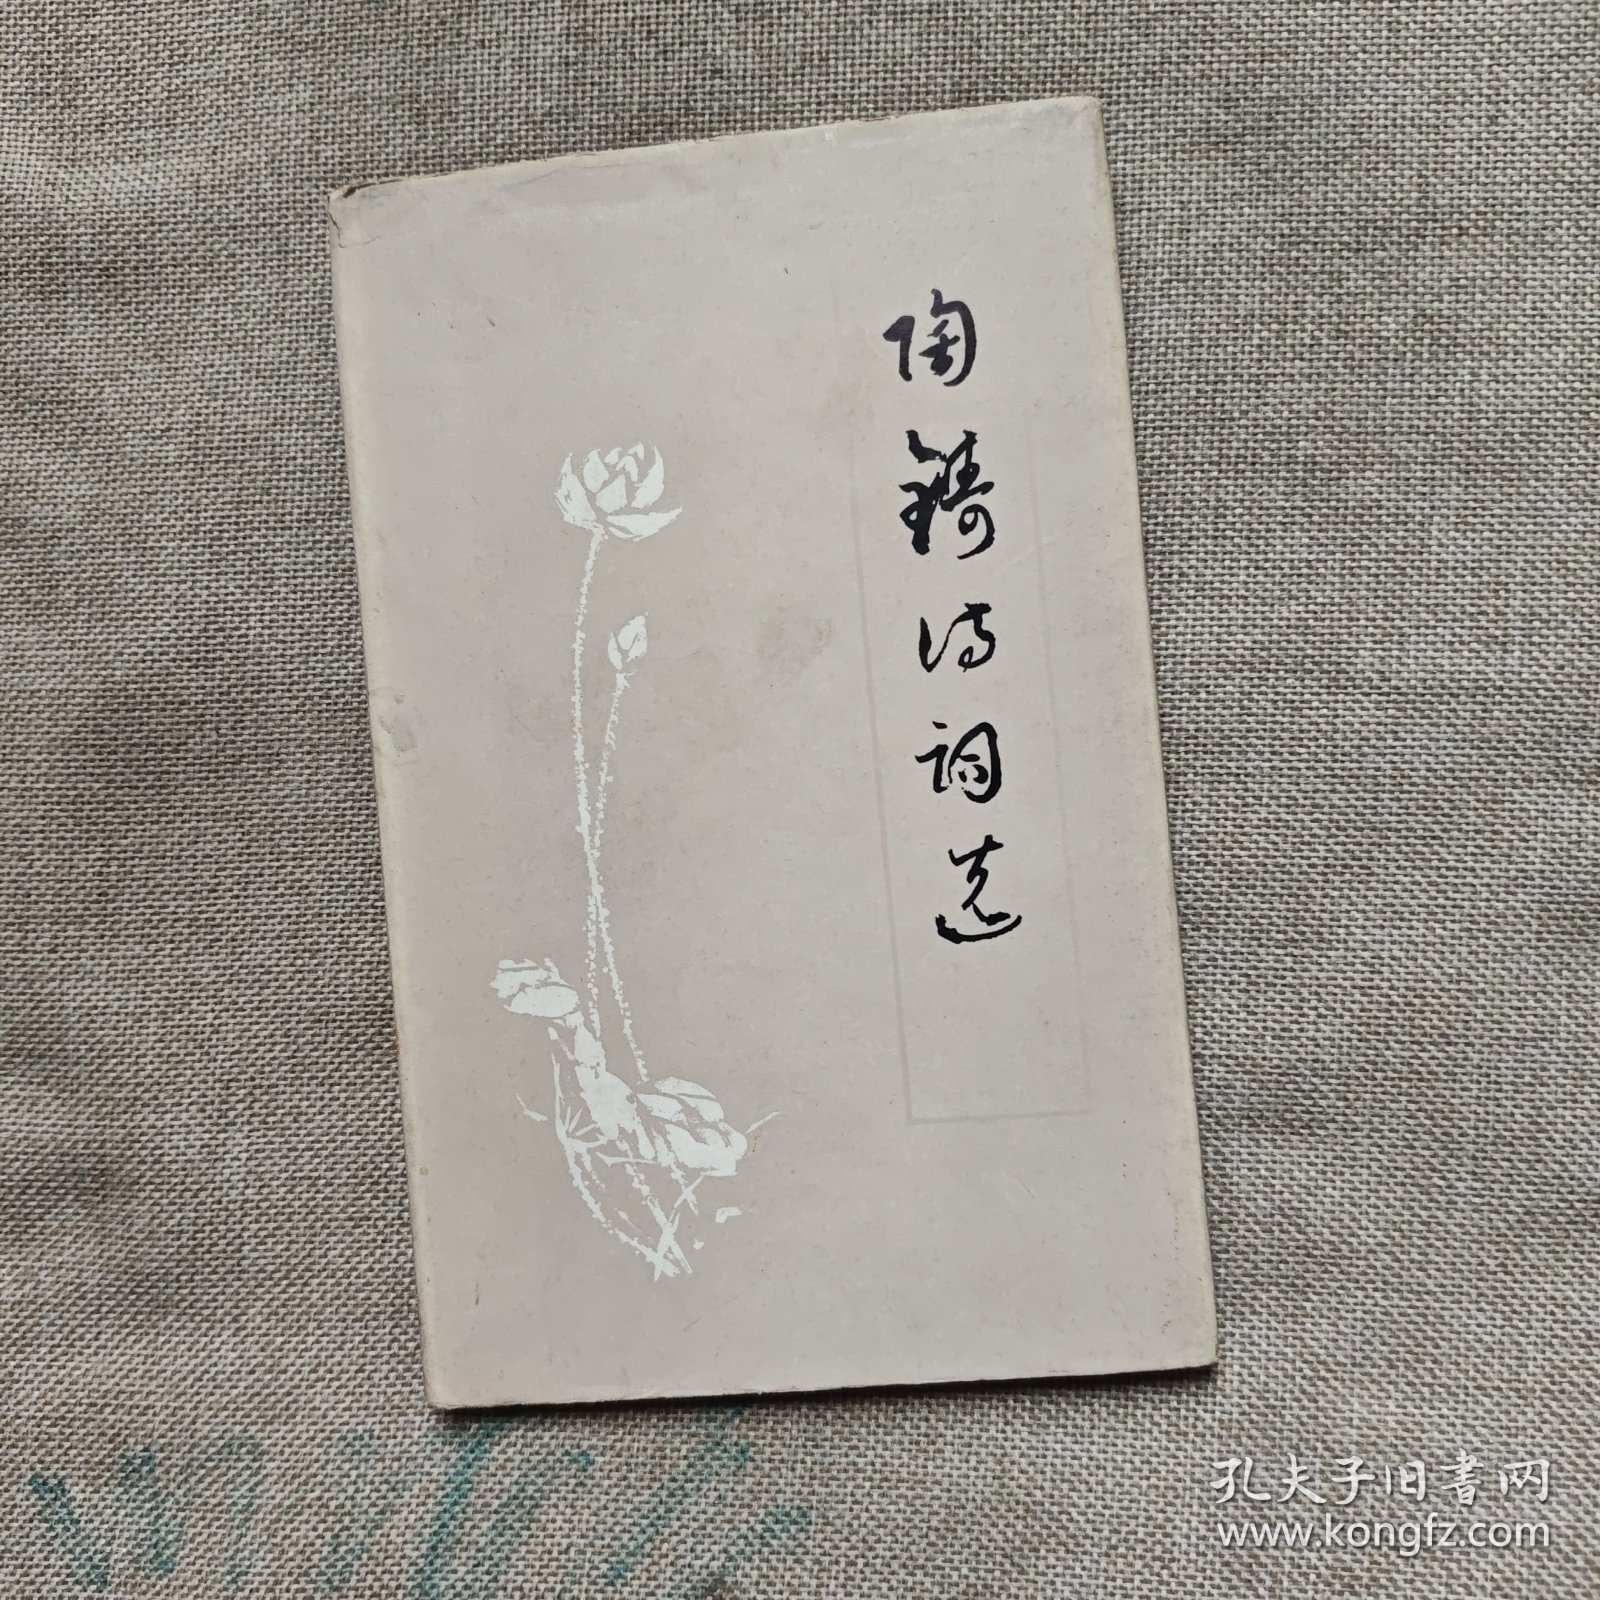 陶鑄诗词选
孔夫子旧書网
www.kongfz.com